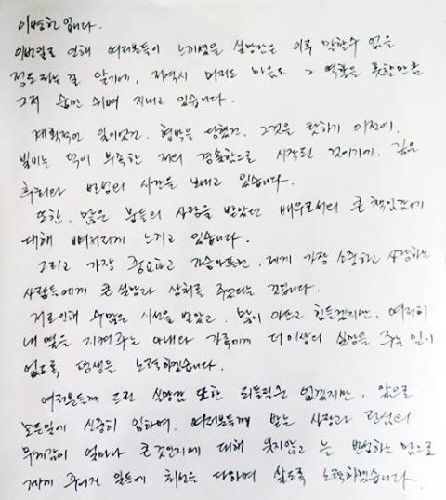 이병헌 입니다.
이번일로 인해 여러분들이 느끼셨을 실망감은 이루 말할수 없을
정도라는걸 잘 알기에, 저역시 머리도 마음도 그 역할을 못할만큼
그저 숨만 쉬며 지내고 있습니다.
계획적인 일이었건, 협박을 당했건, 그것을 탓하기 이전에,
빌미는 덕이 부족한 저의 경솔함으로 시작된 것이기에, 깊은
후회와 반성의 시간을 보내고 있습니다.
또한, 많은 분들의 사랑을 받았던 배우로서의 큰 책임감에
대해 뼈저리게 느끼고 있습니다.
그리고 가장 중요하고 가슴아픈건, 제게 가장 소중하고 사랑하는
사람들에게 큰 실망과 상처를 주었다는 것입니다.
저로 인해 수많은 시선을 받았고, 많이 아프고 힘든겠지만, 여전히
내 옆을 지켜주는 아내와 가족에게 더이상의 실망을 주는 일이
없도록 평생을 노력하겠습니다.
여러분들께 드린 실망감 또한 되돌릴순 없겠지만, 앞으로
모든일에 신중히 임하며, 여러분들께 받는 사랑과 관심의
무게감이 얼마나 큰 것인지에 대해 잊지않고 늘 반성하는 맘으로
제게 주어진 일들에 최선을 다하며 살도록 노력하겠습니다.